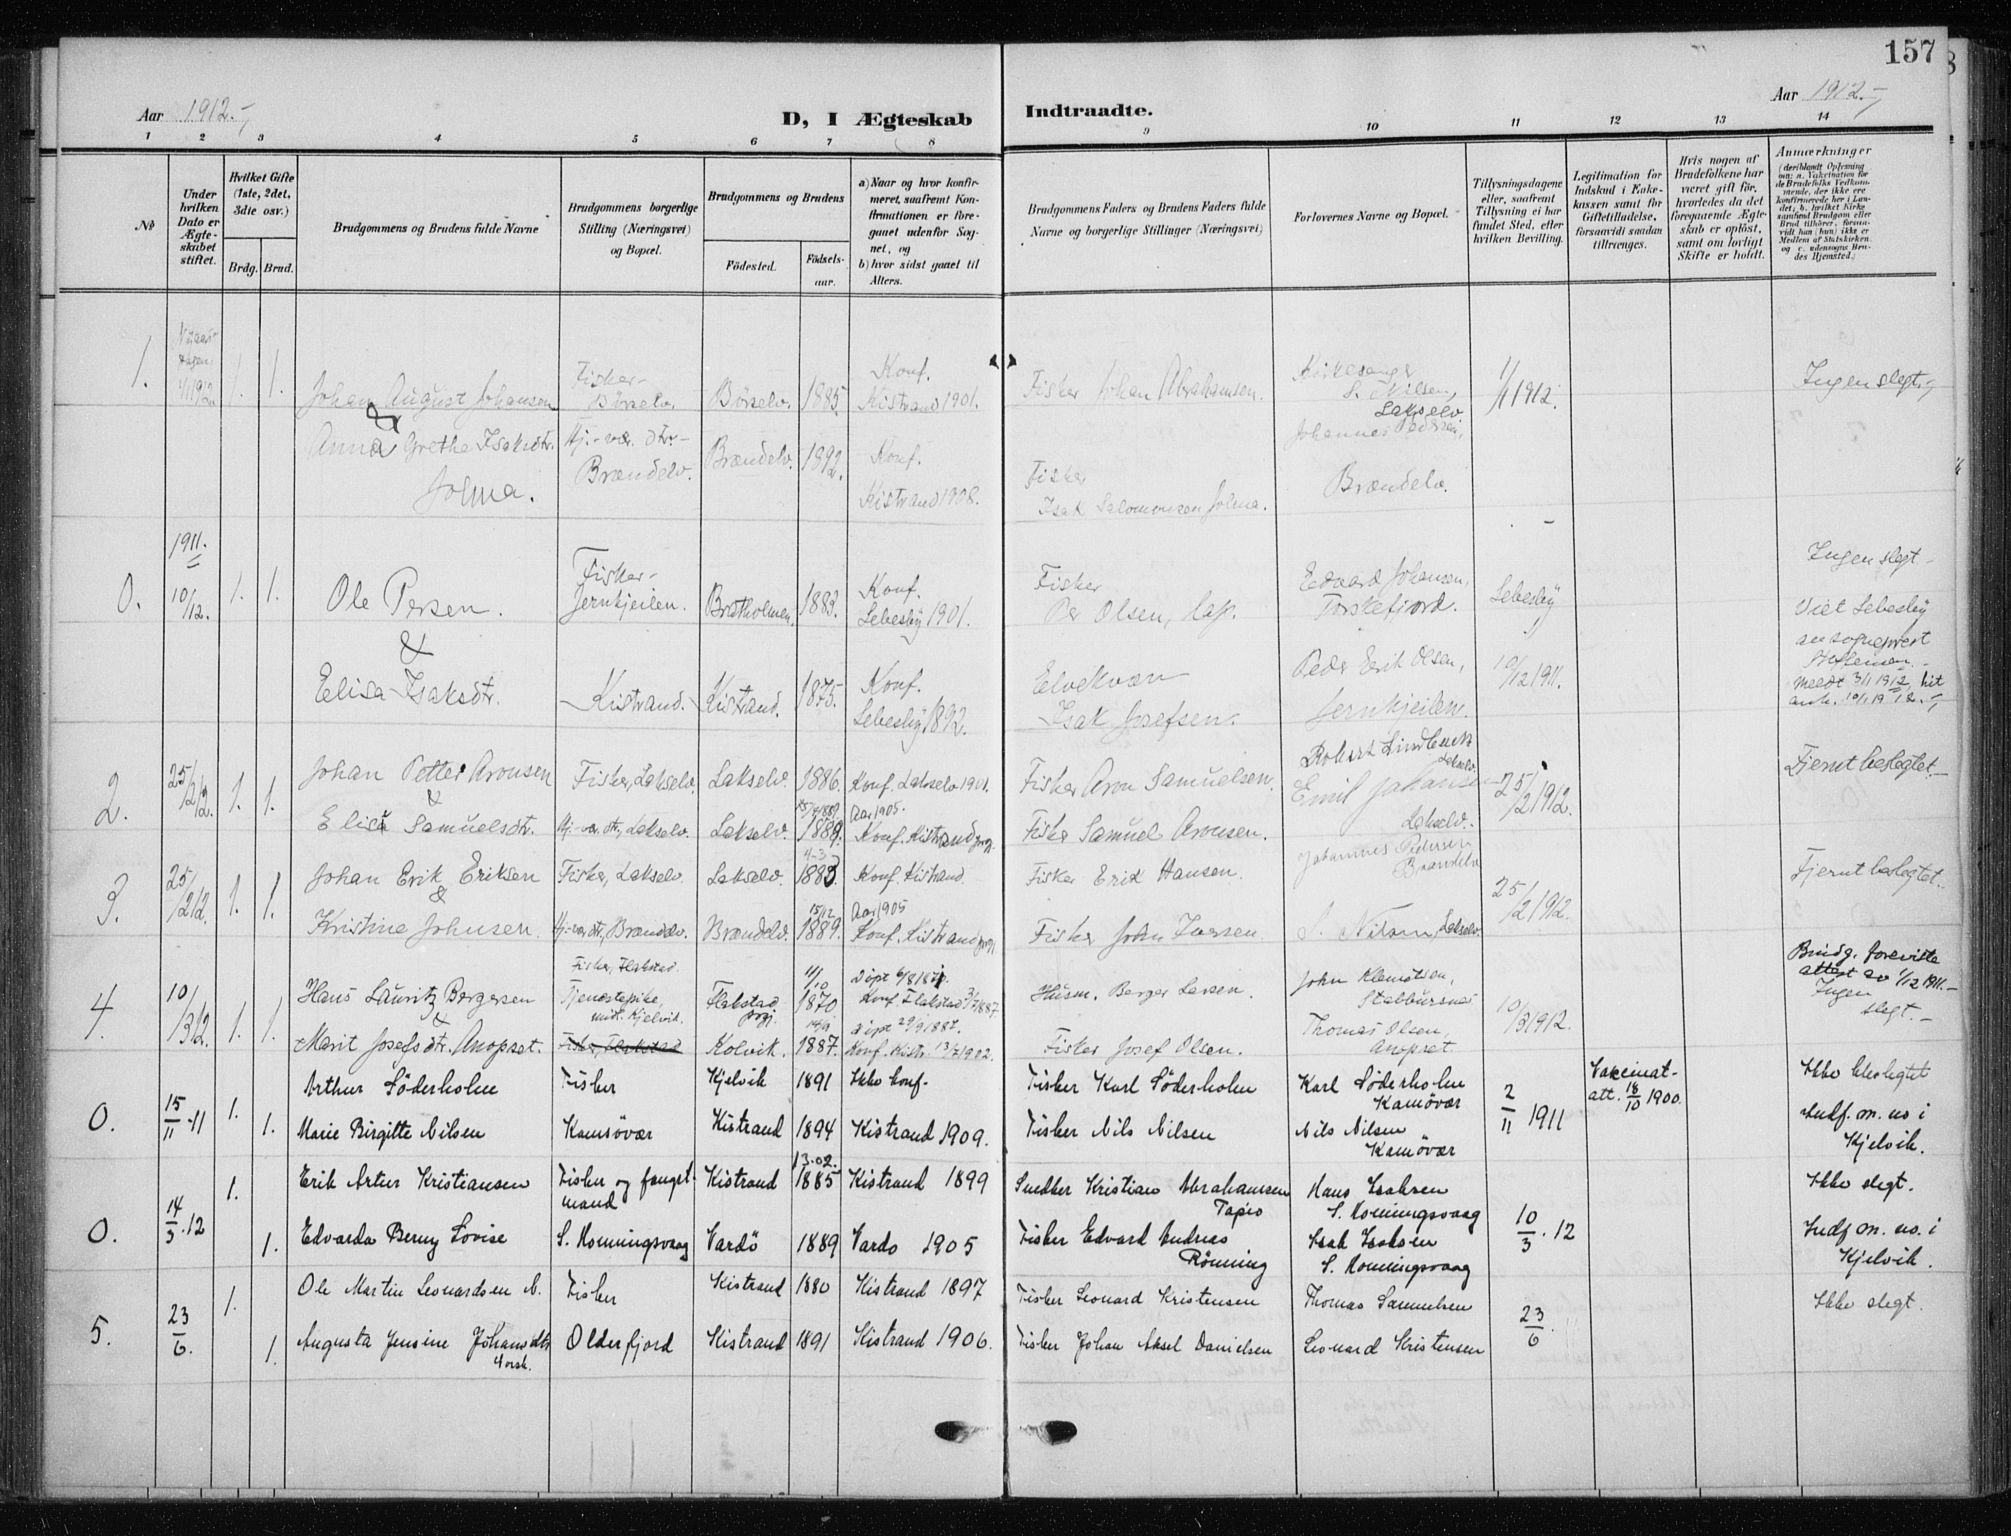 157
Aar 1912.-
D, I Ægteskab Indtraadte.
Aar 1912.-
1 2 3 4 5 6 7 8 9 10 11 12 13 14
No
Under hvilken Dato er Ægteskabet stiftet.
Hvilket Gifte (1ste, 2det, 3die osv.)
Brdg. Brud.
Brudgommens og Brudens fulde Navne
Brudgommens borgerlige Stilling (Næringsvei) og Bopæl.
Brudgommens og Brudens
Födested. Födselsaar.
a) Naar og hvor konfirmeret, saafremt Konfirmationen er foregaaet udenfor Sognet, og
b) hvor sidst gaaet til Alters.
Brudgommens Faders og Brudens Faders fulde Navne og borgerlige Stillinger (Næringsvei)
Forlovernes Navne og Bopæl.
Tillysningsdagene eller, saafremt Tillysning ei har fundet Sted, efter hvilken Bevilling.
Legitimation for Indskud i Enkekassen samt for Giftetilladelse, forsaavidt saadan tiltrænges.
Hvis nogen af Brudefolkene har været gift för, hvorledes da det foregaaende Ægteskab er oplöst, samt om lovligt Skifte er holdt.
Anmærkninger
(deriblandt Oplysning om: a. Vakcination for de Brudefolks Vedkommende, der ikke ere konfirmerede her i Landet; b. hvilket Kirkesamfund Brudgom eller Brud tilhörer, forsaavidt han (hun) ikke er Medlem af Statskirken, og c. udensogns Brudes Hjemsted.)
1. 1/1 1912 1. 1.
Johan August Johansen Fisker- Börselv. Börselv. 1885. Konf. Kistrand 1901. Fisker Johan Abrahamsen. Kirkesanger S. Nilsen, Lakselv 1/1 1912. Ingen slegt.-
&
Anna Grethe Isaksdtr. Jolma. Hj.-vær. dtr- Brændelv. Brændelv. 1892. Konf. Kistrand 1908. Fisker Isak Salomonsen Jolma. Johannes Pedersen, Brændelv.
1911.
0. 10/12. 1. 1.
Ole Persen. Fisker- Jernkjeilen. Bratholmen. 1883. Konf. Lebesby 1901. Fisker Per Olsen, lap. Edvard Johansen, Torskefjord. Lebesby Ingen slegt-
&
Elisa Isaksdtr. Kistrand. Kistrand. 1875. Konf. Lebesby 1892. Elvekvæn Isak Josefsen. Peder Erik Olsen, Jernkjeilen. 10/12 1911. Viet Lebesby av sogneprest
Meldt 3/1 1912, hit ank. 10/1 1912.-
2. 25/2 12. 1. 1.
Johan Petter Aronsen Fisker, Lakselv. Lakselv. 1886. Konf. Lakselv 1901. Fisker Aron Samuelsen. Robert Lindbeck Lakselv. 25/2 1912. Fjernt beslegtet.-
&
Elisa Samuelsdtr. Hj.-vær. dtr, Lakselv. Lakselv. 1889. Aar 1905. Konf. Kistrand prgj. Fisker Samuel Aronsen. Emil Johansen Lakselv.
3. 25/2 12. 1. 1.
Johan Erik Eriksen Fisker, Lakselv. Lakselv. 4-3 1883. Konf. Kistrand. Fisker Erik Hansen. Johannes Pedersen Brændelv 25/2 1912. Fjernt beslegtet.
&
Kristine Johnsen. Hj-vær dtr, Brændelv. Brændelv. 15/12 1889. Aar 1905 Konf. Kistrand prgj. Fisker John Iversen. S. Nilsen, Lakselv.
4. 10/3 12. 1. 1.
Hans Lauritz Bergersen Fisker, Flakstad. Flakstad prgj. 11/10 1870 Konf. Flakstad 3/7 1887. Husm. Berger Larsen. John Klemetsen, Stabbursnes 10/3 1912. Brudg. foreviste attest av 1/12 1911.- Ingen slegt.-
&
Marit Josefsdtr. Anopset. Tjenestepike, midt. Kjelvik. Fisker, Flakstad Kolvik. 14/9 1887. Döpt 29/9 1887. Konf. Kistr. 13/7 1902. Fisker Josef Olsen. Thomas Olsen, Anopset.
0. 15/11 -11 1. 1.
Arthur Söderholm Fisker Kjelvik 1891 Ikke konf. Fisker Karl Söderholm Karl Söderholm Kamövær 2/11 1911 Vakcinat- att. 18/10 1900. Ikke beslegtet
Marie Birgitte Nilsen Kamöver Kistrand 1894 Kistrand 1909. Fisker Nils Nilsen Nils Nilsen Kamövær Indf. m. no i Kjelvik.
0. 14/3 .12 1. 1.
Erik Artur Kristiansen Fisker og fangstmand Kistrand 13.02. 1885 Kistrand 1899 Snedker Kristian Abrahamsen Tapio Hans Isaksen S. Honningsvaag 10/3 .12 Ikke slegt.
Edvarda Berny Lovise S. Honningsvaag Vardö 1889 Vardo 1905 Fisker Edvard Andreas Rönning Isak Isaksen S. Honningsvaag Indf m. no. i Kjelvik.
5. 23/6. 1. 1.
Ole Martin Leonardsen N. Fisker Kistrand 1880 Kistrand 1897 Fisker Leonard Kristensen Thomas Samuelsen 23/6. Ikke slegt.
Augusta Jensine Johansdtr Norsk. Olderfjord Kistrand 1891 Kistrand 1906. Fisker Johan Aksel Danielsen Leonard Kristensen